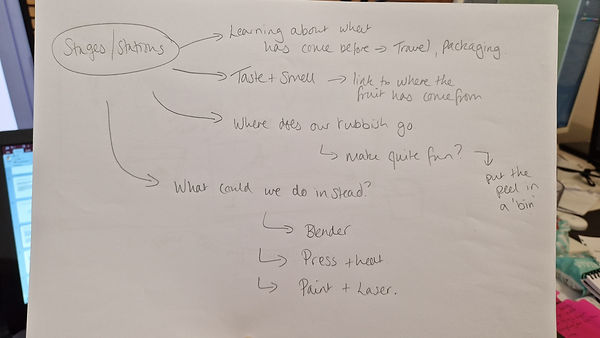 Stages/Stations
Learning about what
has come before → Travel, packaging
Taste + Smell → link to where the
fruit has come from
Where does our rubbish go
make quite fun?
put the
peel in
a 'bin'
What could we do instead?
Bender
Press + heat
Paint + Laser.